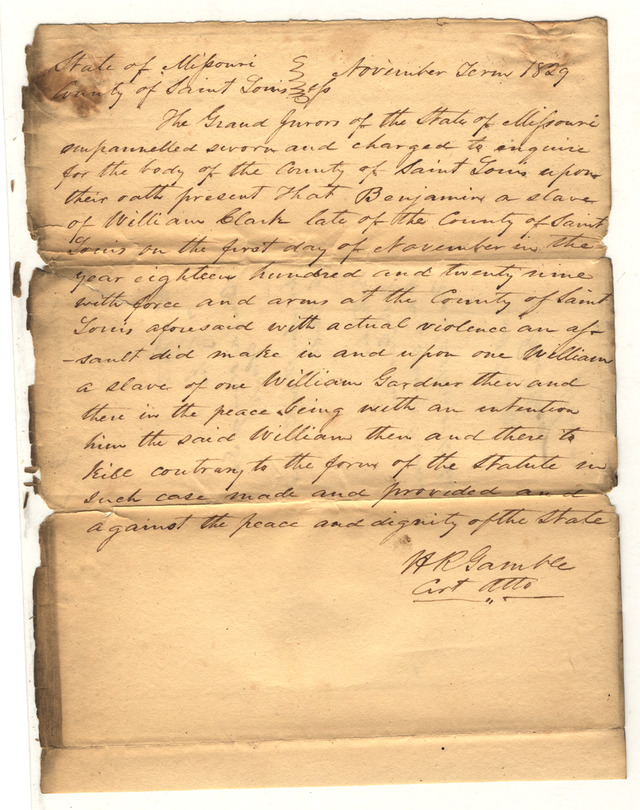 State of Missouri } November Term 1829
County of Saint Louis } ss
The Grand Jurors of the State of Missouri
empannelled sworn and charged to inquire
for the body of the County of Saint Louis upon
their oath present That Benjamin a slave
of William Clark late of the County of Saint
Louis on the first day of November in the
year eighteen hundred and twenty nine
with force and arms at the County of Saint
Louis aforesaid with actual violence an as-
-sault did make in and upon one William
a slave of one William Gardner then and
there in the peace being with an intention
him the said William then and there to
kill contrary to the form of the Statute in
such case made and provided and
against the peace and dignity of the State
H R Gamble
Cirt Atto